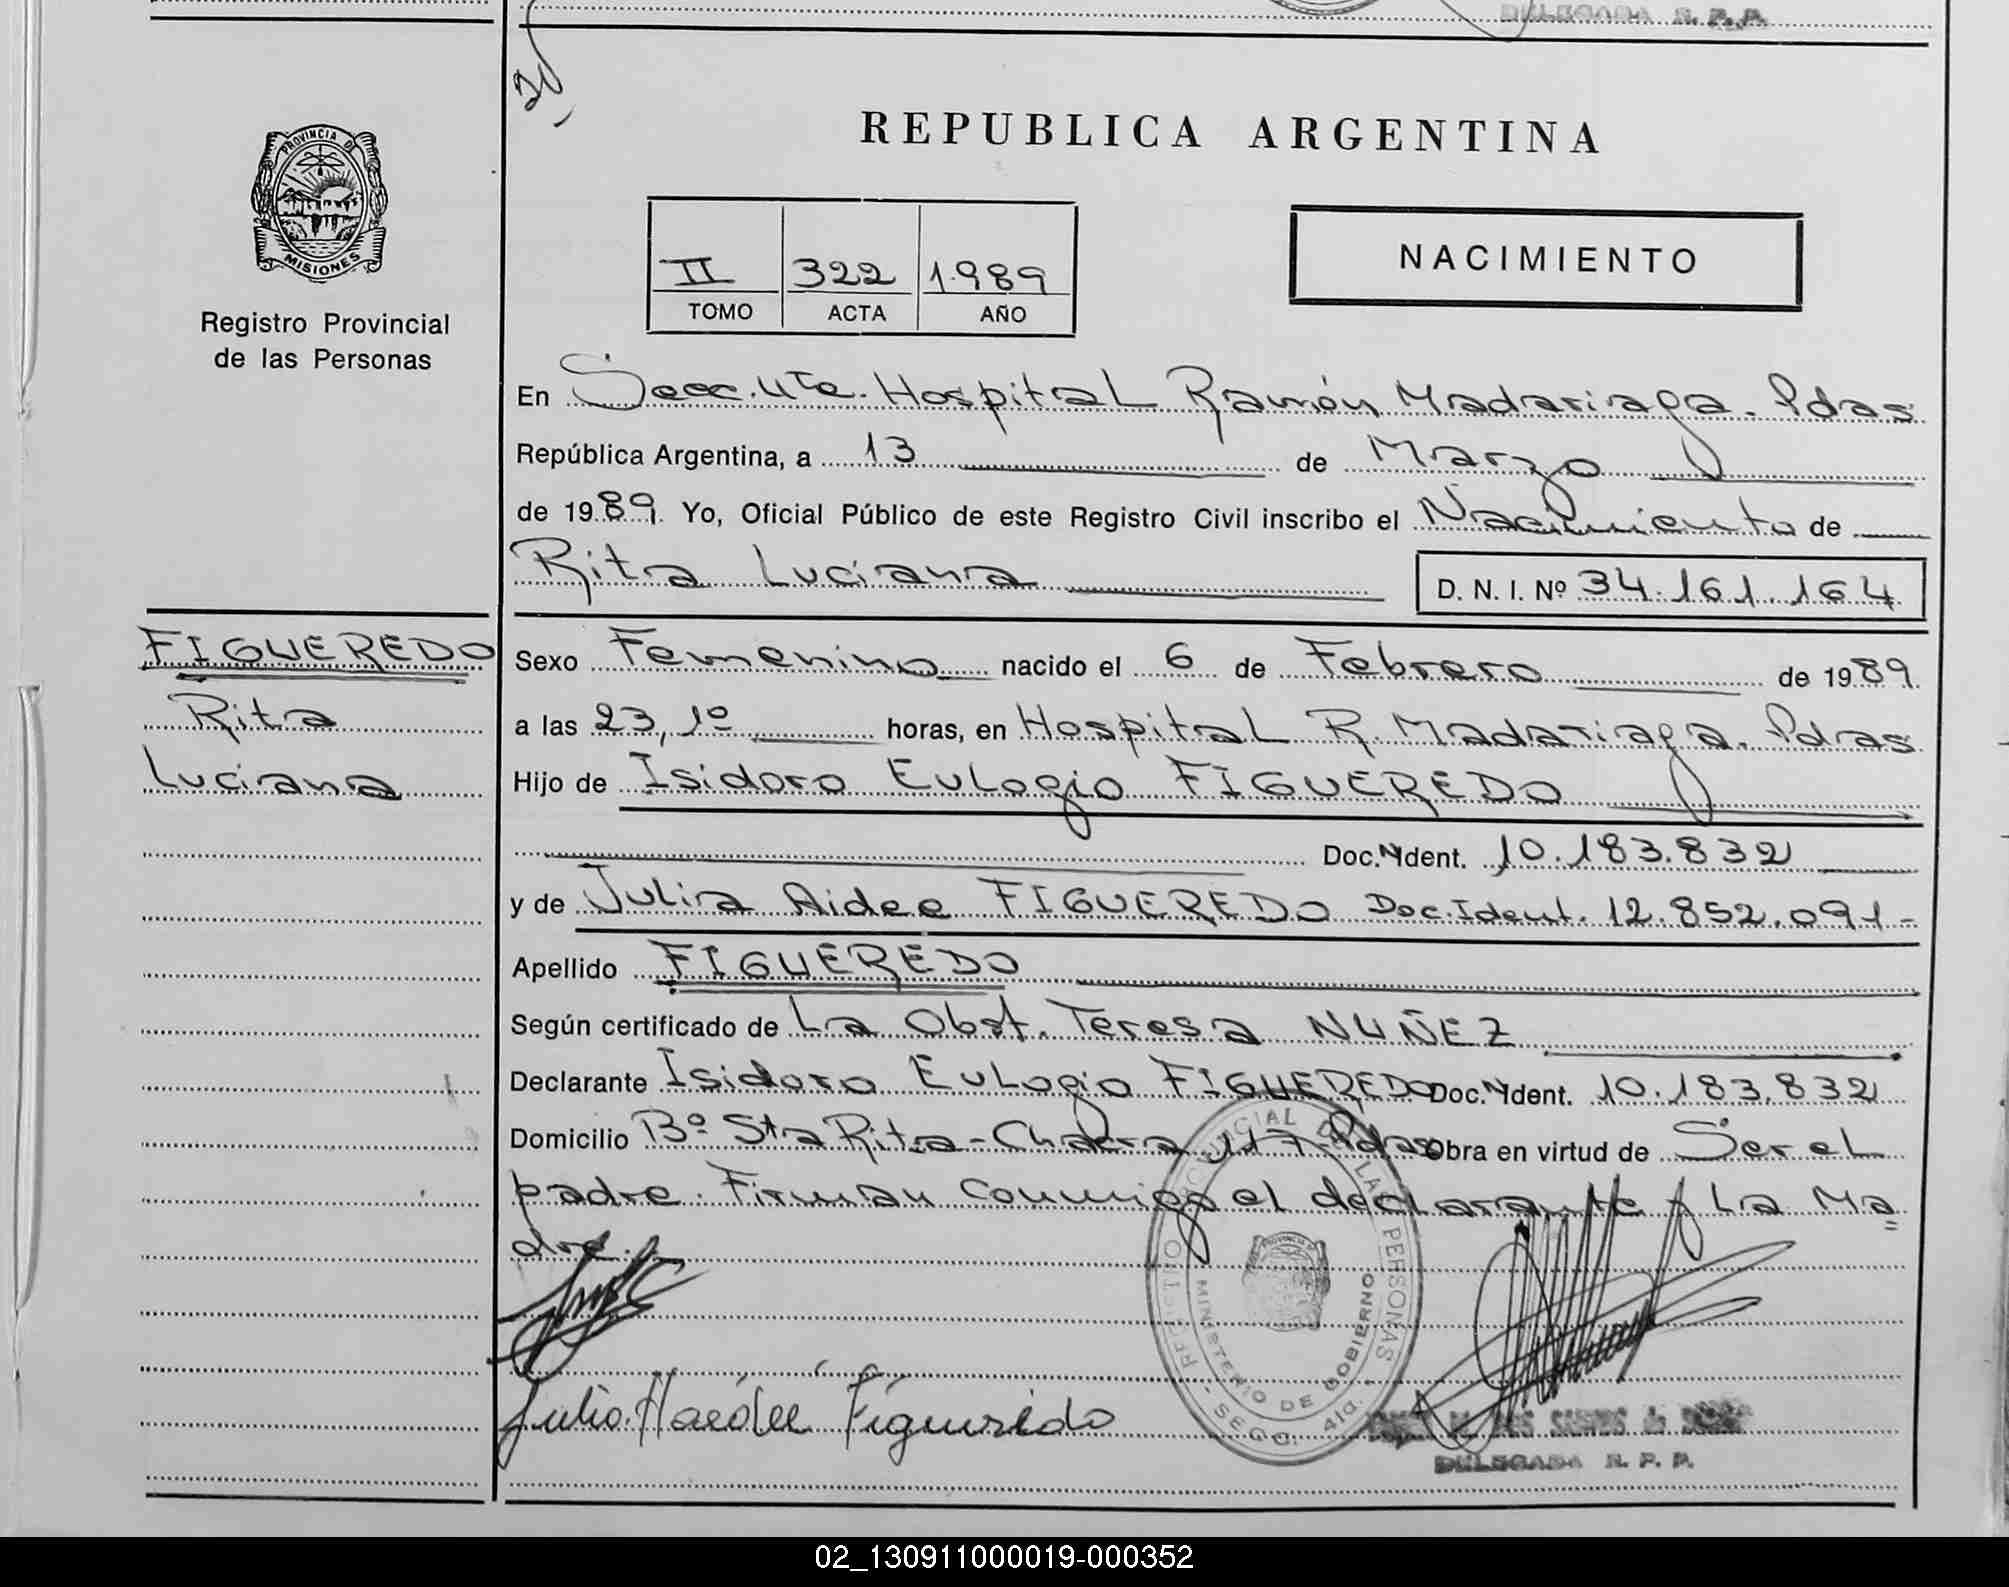 DELEGADA R. P. P.
20
PROVINCIA DE
MISIONES
Registro Provincial
de las Personas
REPUBLICA ARGENTINA
II 322 1.989
TOMO ACTA AÑO
NACIMIENTO
En Secc. 4ta. Hospital Ramón Madariaga. Pdas
República Argentina, a 13 de Marzo
de 1989. Yo, Oficial Público de este Registro Civil inscribo el Nacimiento de
Rita Luciana
D. N. I. Nº 34.161.164
FIGUEREDO
Rita
Luciana
Sexo Femenino nacido el 6 de Febrero de 1989.
a las 23,1º horas, en Hospital R. Madariaga. Pdas
Hijo de Isidoro Eulogio FIGUEREDO
Doc. Ident. 10.183.832
y de Julia Aidee FIGUEREDO Doc. Ident. 12.852.091-
Apellido FIGUEREDO
Según certificado de La Obst. Teresa NUÑEZ
Declarante Isidoro Eulogio FIGUEREDO Doc. Ident. 10.183.832
Domicilio Bº Sta Rita-Chacra 117-Pdas Obra en virtud de Ser el
padre. Firman conmigo el declarante y La Ma
dre.
REGISTRO PROVINCIAL DE LAS PERSONAS
MINISTERIO DE GOBIERNO
- SECC. 4ta. -
Julia Haidee Figueredo
DELEGADA R. P. P.
02_130911000019-000352